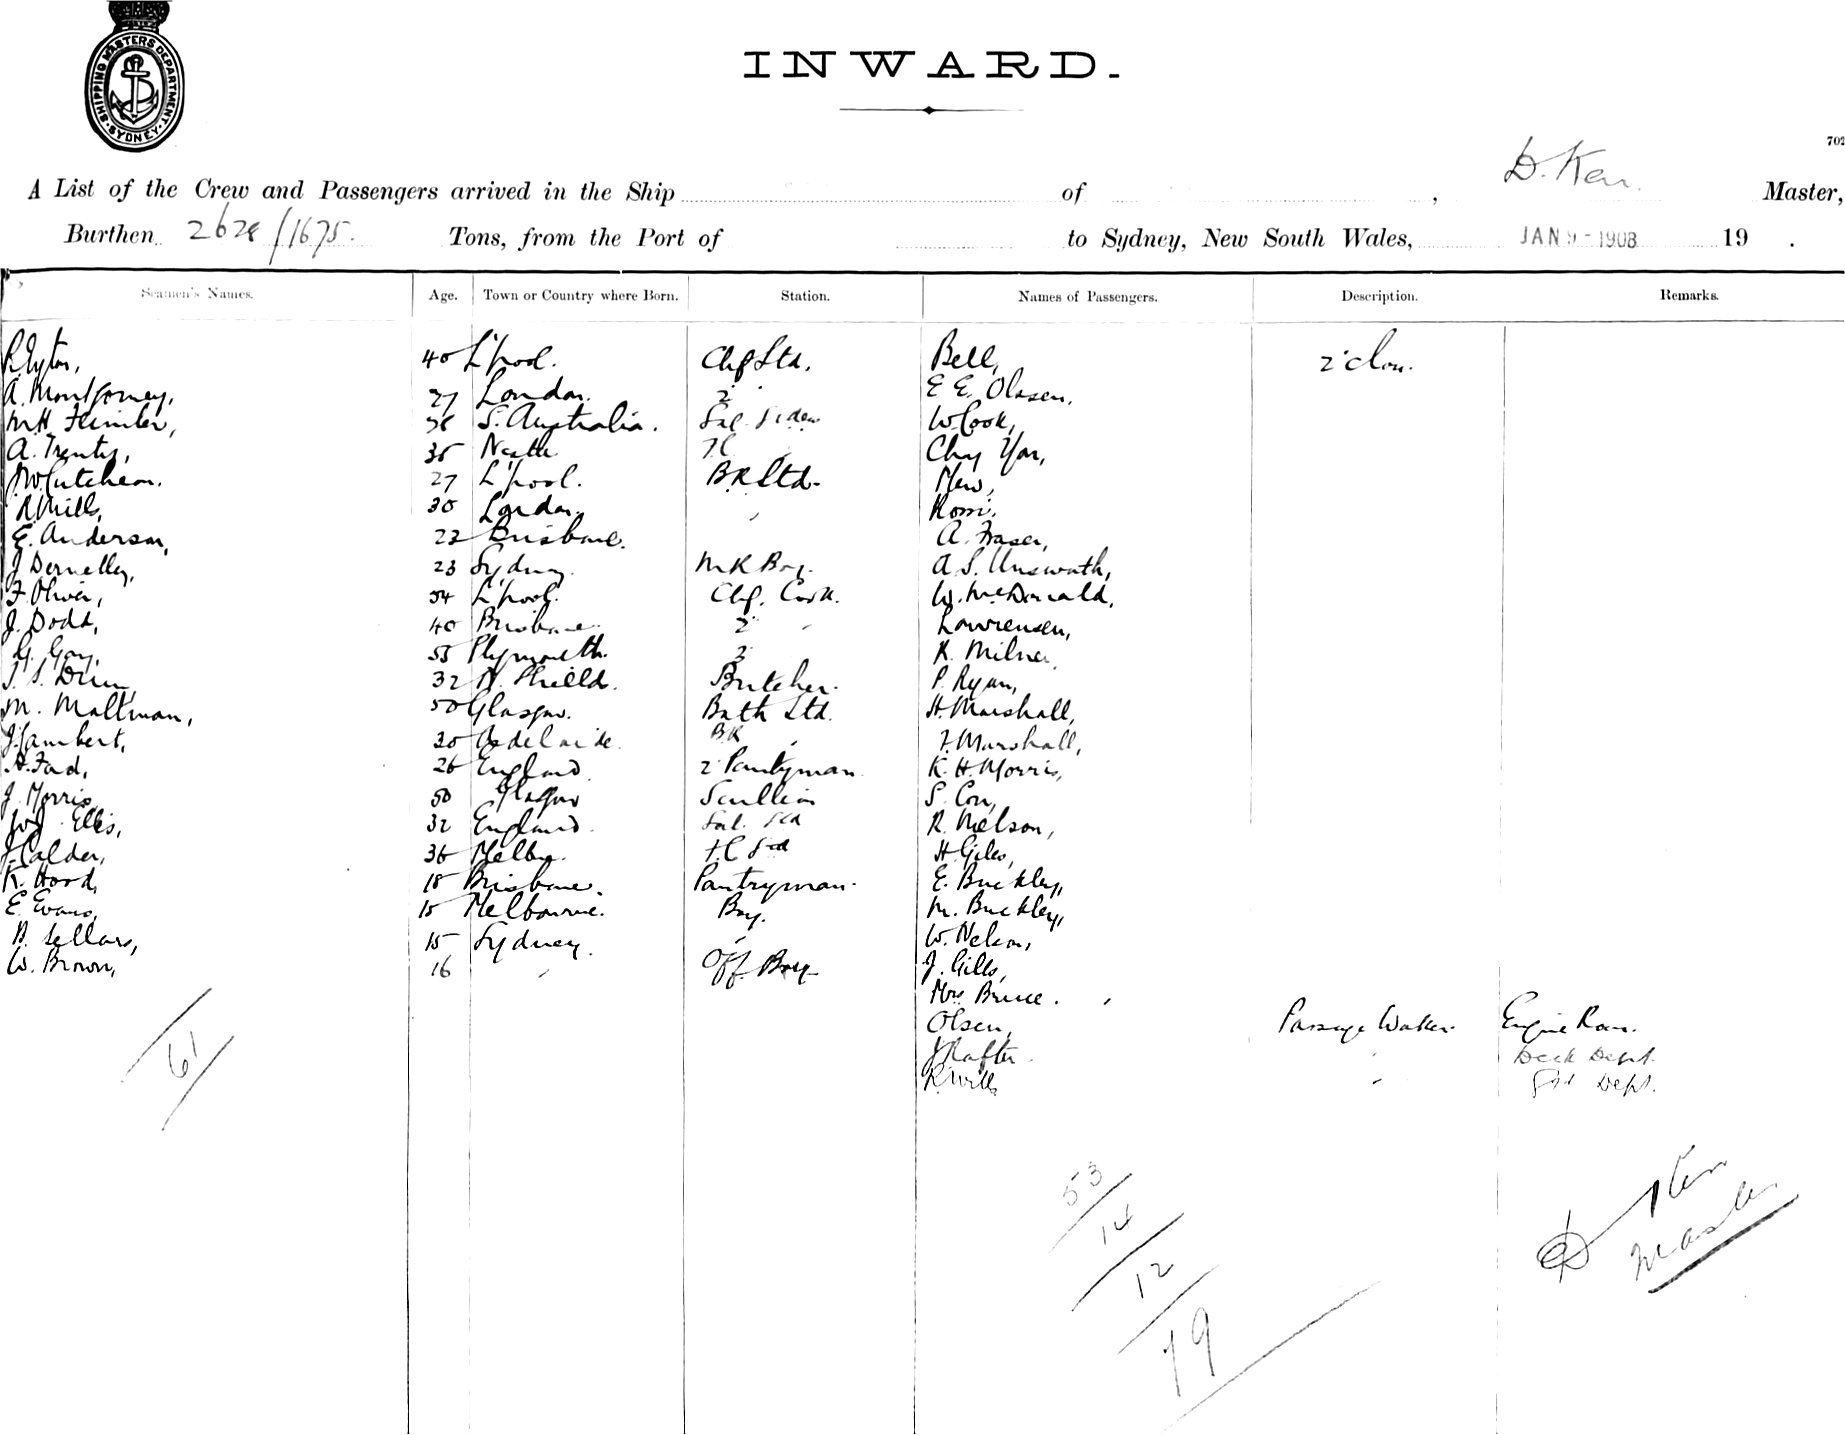 SHIPPING MASTERS DEPARTMENT
SYDNEY
INWARD.
702
A List of the Crew and Passengers arrived in the Ship of , D. Kerr. Master,
Burthen 2628/1675. Tons, from the Port of to Sydney, New South Wales, JAN 9 - 1908 19 .
Seamen's Names. Age. Town or Country where Born. Station. Names of Passengers. Description. Remarks.
40 L'pool. Chf Std. Bell, 2 clas.
A. Montgomery, 27 London. 2 E E. Olssen,
S. Australia. W Cook,
A. 35 Chy Yar,
27 L'pool. B R Std. Mew,
A Mills, 30 London.
E. Anderson, 22 Brisbane. A. Fraser,
J Dernelley, 23 Sydney. M R Boy. A. S. Unsworth,
F. Oliver, 54 L'pool. Chf. Cook. W. McDonald,
J. Dodd, 40 Brisbane. 2 Lawrensen,
G. Gay, 55 Plymouth. 3 R. Milner,
32 N. Shields. Butcher. P. Ryan,
M. Maltman, 50 Glasgow. Bath Std. H. Marshall,
J Lambert, 30 Adelaide. B R F. Marshall,
26 England. 2 Pantryman K. H. Morris,
J. Morris, 50 Glasgow Scullion S. Cox,
Ellis, 32 England. Sal. Std R. Nelson,
J Calder, 36 Melbn. F.C Std H. Giles,
K. Hood, 18 Brisbane. Pantryman. E. Buckley,
E. Evans, 15 Melbourne. Boy. M. Buckley,
B. Sellars, 15 Sydney. W. Nelson,
W. Brown, 16 Off. Boy J. Gills,
Mrs Bruce.
Olsen, Passage Worker. Engine Room.
J Rafter Deck Dept.
R Wills Std Dept.
61
53
14
12
79
D Kerr
Master